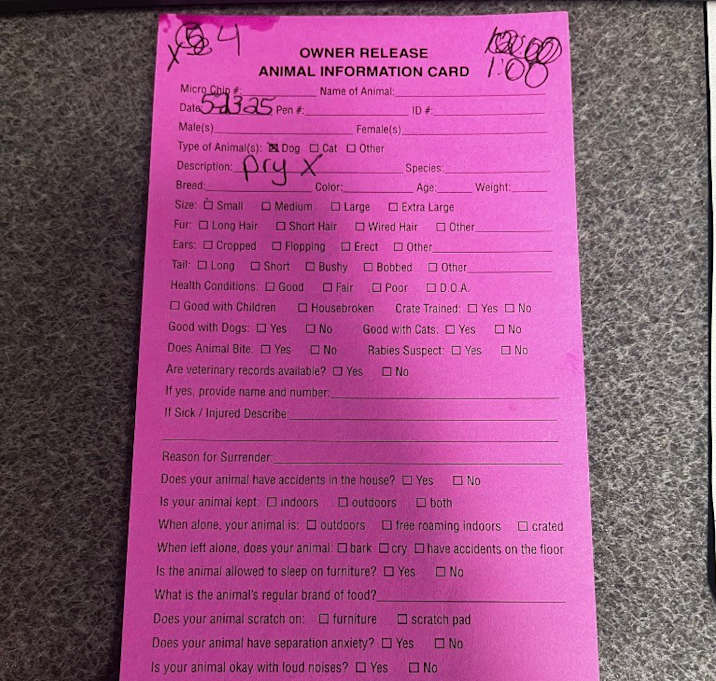 x 4
1:00
OWNER RELEASE
ANIMAL INFORMATION CARD
Micro Chip #: Name of Animal:
Date: 5-23-25 Pen #: ID #:
Male(s) Female(s)
Type of Animal(s): ☒ Dog ☐ Cat ☐ Other
Description: pry x Species:
Breed: Color: Age: Weight:
Size: ☐ Small ☐ Medium ☐ Large ☐ Extra Large
Fur: ☐ Long Hair ☐ Short Hair ☐ Wired Hair ☐ Other
Ears: ☐ Cropped ☐ Flopping ☐ Erect ☐ Other
Tail: ☐ Long ☐ Short ☐ Bushy ☐ Bobbed ☐ Other
Health Conditions: ☐ Good ☐ Fair ☐ Poor ☐ D.O.A.
☐ Good with Children ☐ Housebroken Crate Trained: ☐ Yes ☐ No
Good with Dogs: ☐ Yes ☐ No Good with Cats: ☐ Yes ☐ No
Does Animal Bite: ☐ Yes ☐ No Rabies Suspect: ☐ Yes ☐ No
Are veterinary records available? ☐ Yes ☐ No
If yes, provide name and number:
If Sick / Injured Describe:
Reason for Surrender:
Does your animal have accidents in the house? ☐ Yes ☐ No
Is your animal kept: ☐ indoors ☐ outdoors ☐ both
When alone, your animal is: ☐ outdoors ☐ free roaming indoors ☐ crated
When left alone, does your animal: ☐ bark ☐ cry ☐ have accidents on the floor
Is the animal allowed to sleep on furniture? ☐ Yes ☐ No
What is the animal's regular brand of food?
Does your animal scratch on: ☐ furniture ☐ scratch pad
Does your animal have separation anxiety? ☐ Yes ☐ No
Is your animal okay with loud noises? ☐ Yes ☐ No